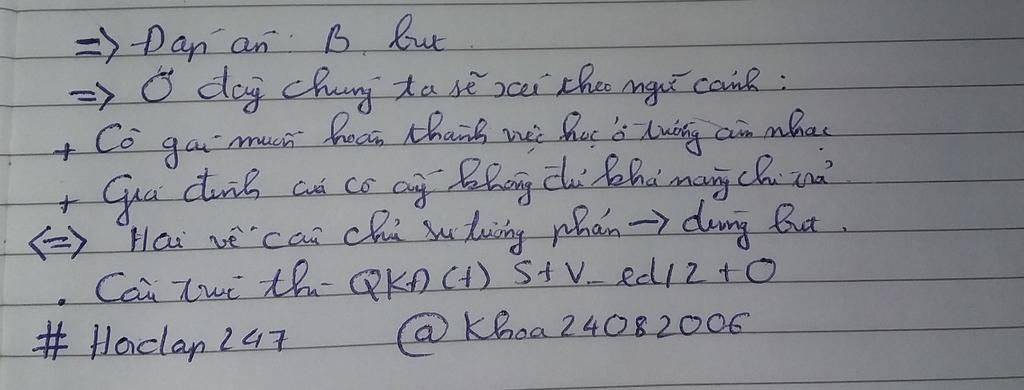 => Đáp án: B. but
=> Ở đây chúng ta sẽ xét theo ngữ cảnh:
+ Cô gái muốn hoàn thành việc học ở trường âm nhạc
+ Gia đình của cô ấy không đủ khả năng chi trả
<=> Hai vế câu chỉ sự tương phản → dùng but.
. Cấu trúc thì QKĐ (+) S + V_ed/2 + O
# Hoclap247 @Khoa24082006